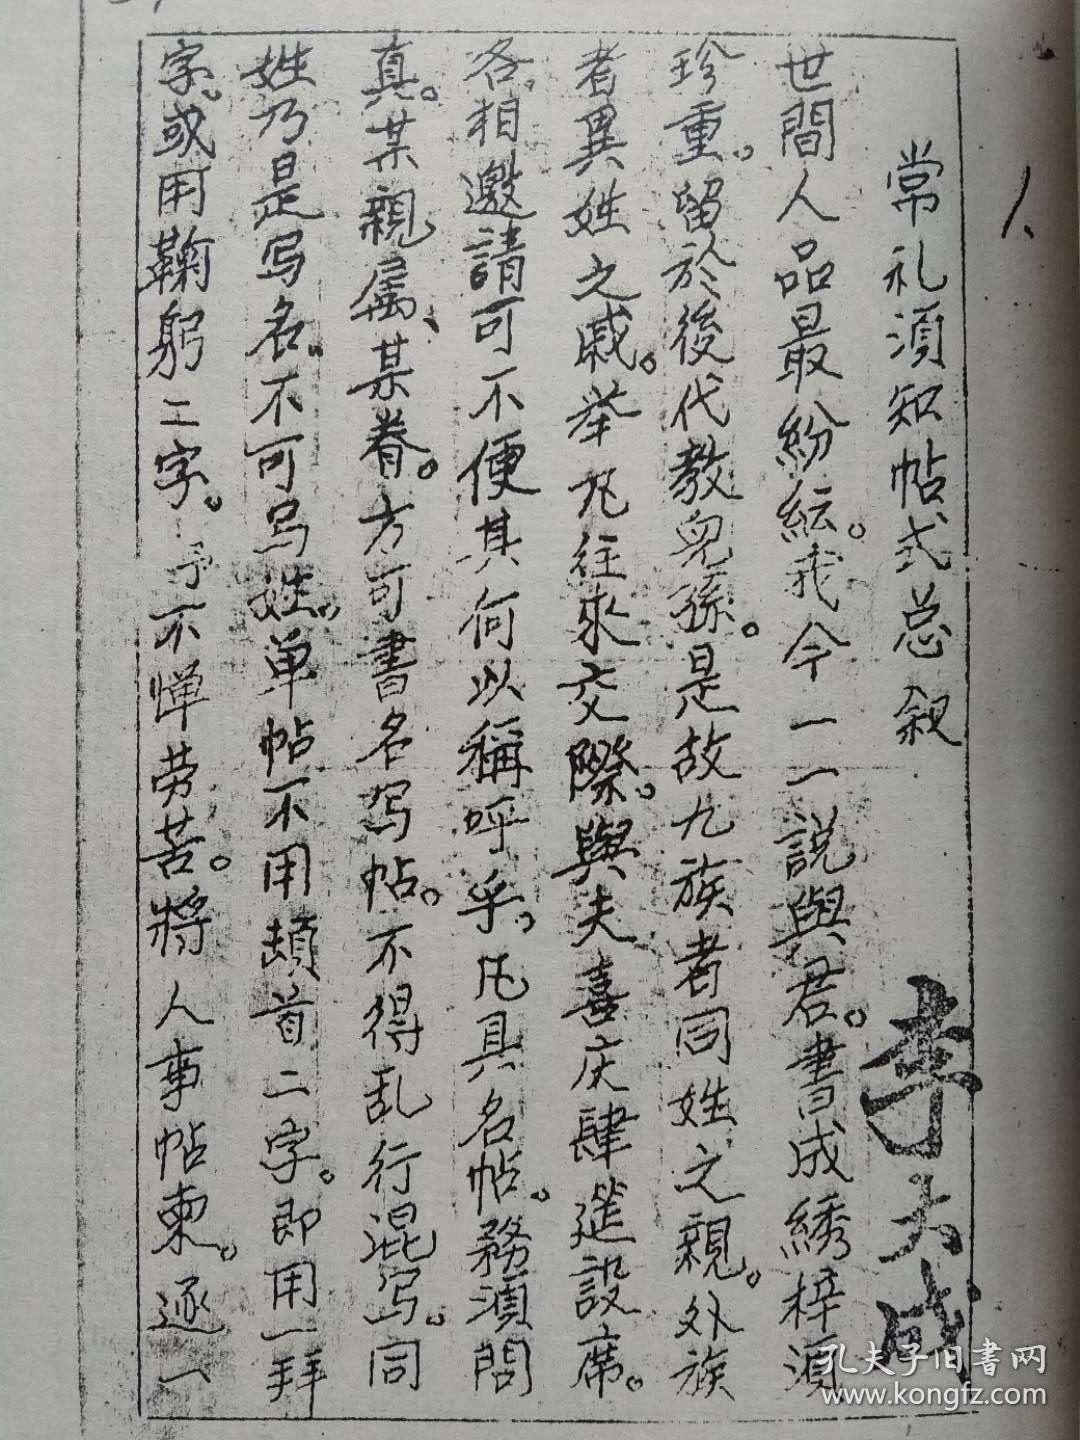 1、
常礼須知帖式总叙
李大成
世間人品最紛紜。我今一一說與君。書成綉梓須
珍重。留於後代教兒孫。是故九族者同姓之親。外族
者異姓之戚。举凡往來交際。與夫喜庆肆筵設席。
各相邀請可不便其何以稱呼乎。凡具名帖。務須問
真。某親属、某眷。方可書名写帖。不得乱行混写。同
姓乃是写名。不可写姓。单帖不用頓首二字。即用一拜
字。或用鞠躬二字。予不惮劳苦。將人事帖柬。逐一
孔夫子旧書网
www.kongfz.com